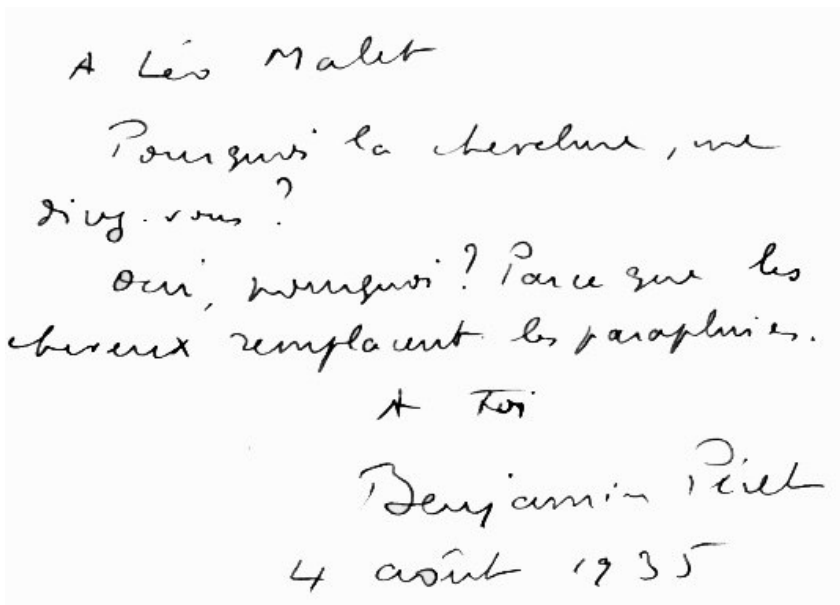 A Léo Malet
Pourquoi la chevelure, me
direz-vous?
Oui, pourquoi? Parce que les
cheveux remplacent les parapluies.
A toi
Benjamin Péret
4 août 1935